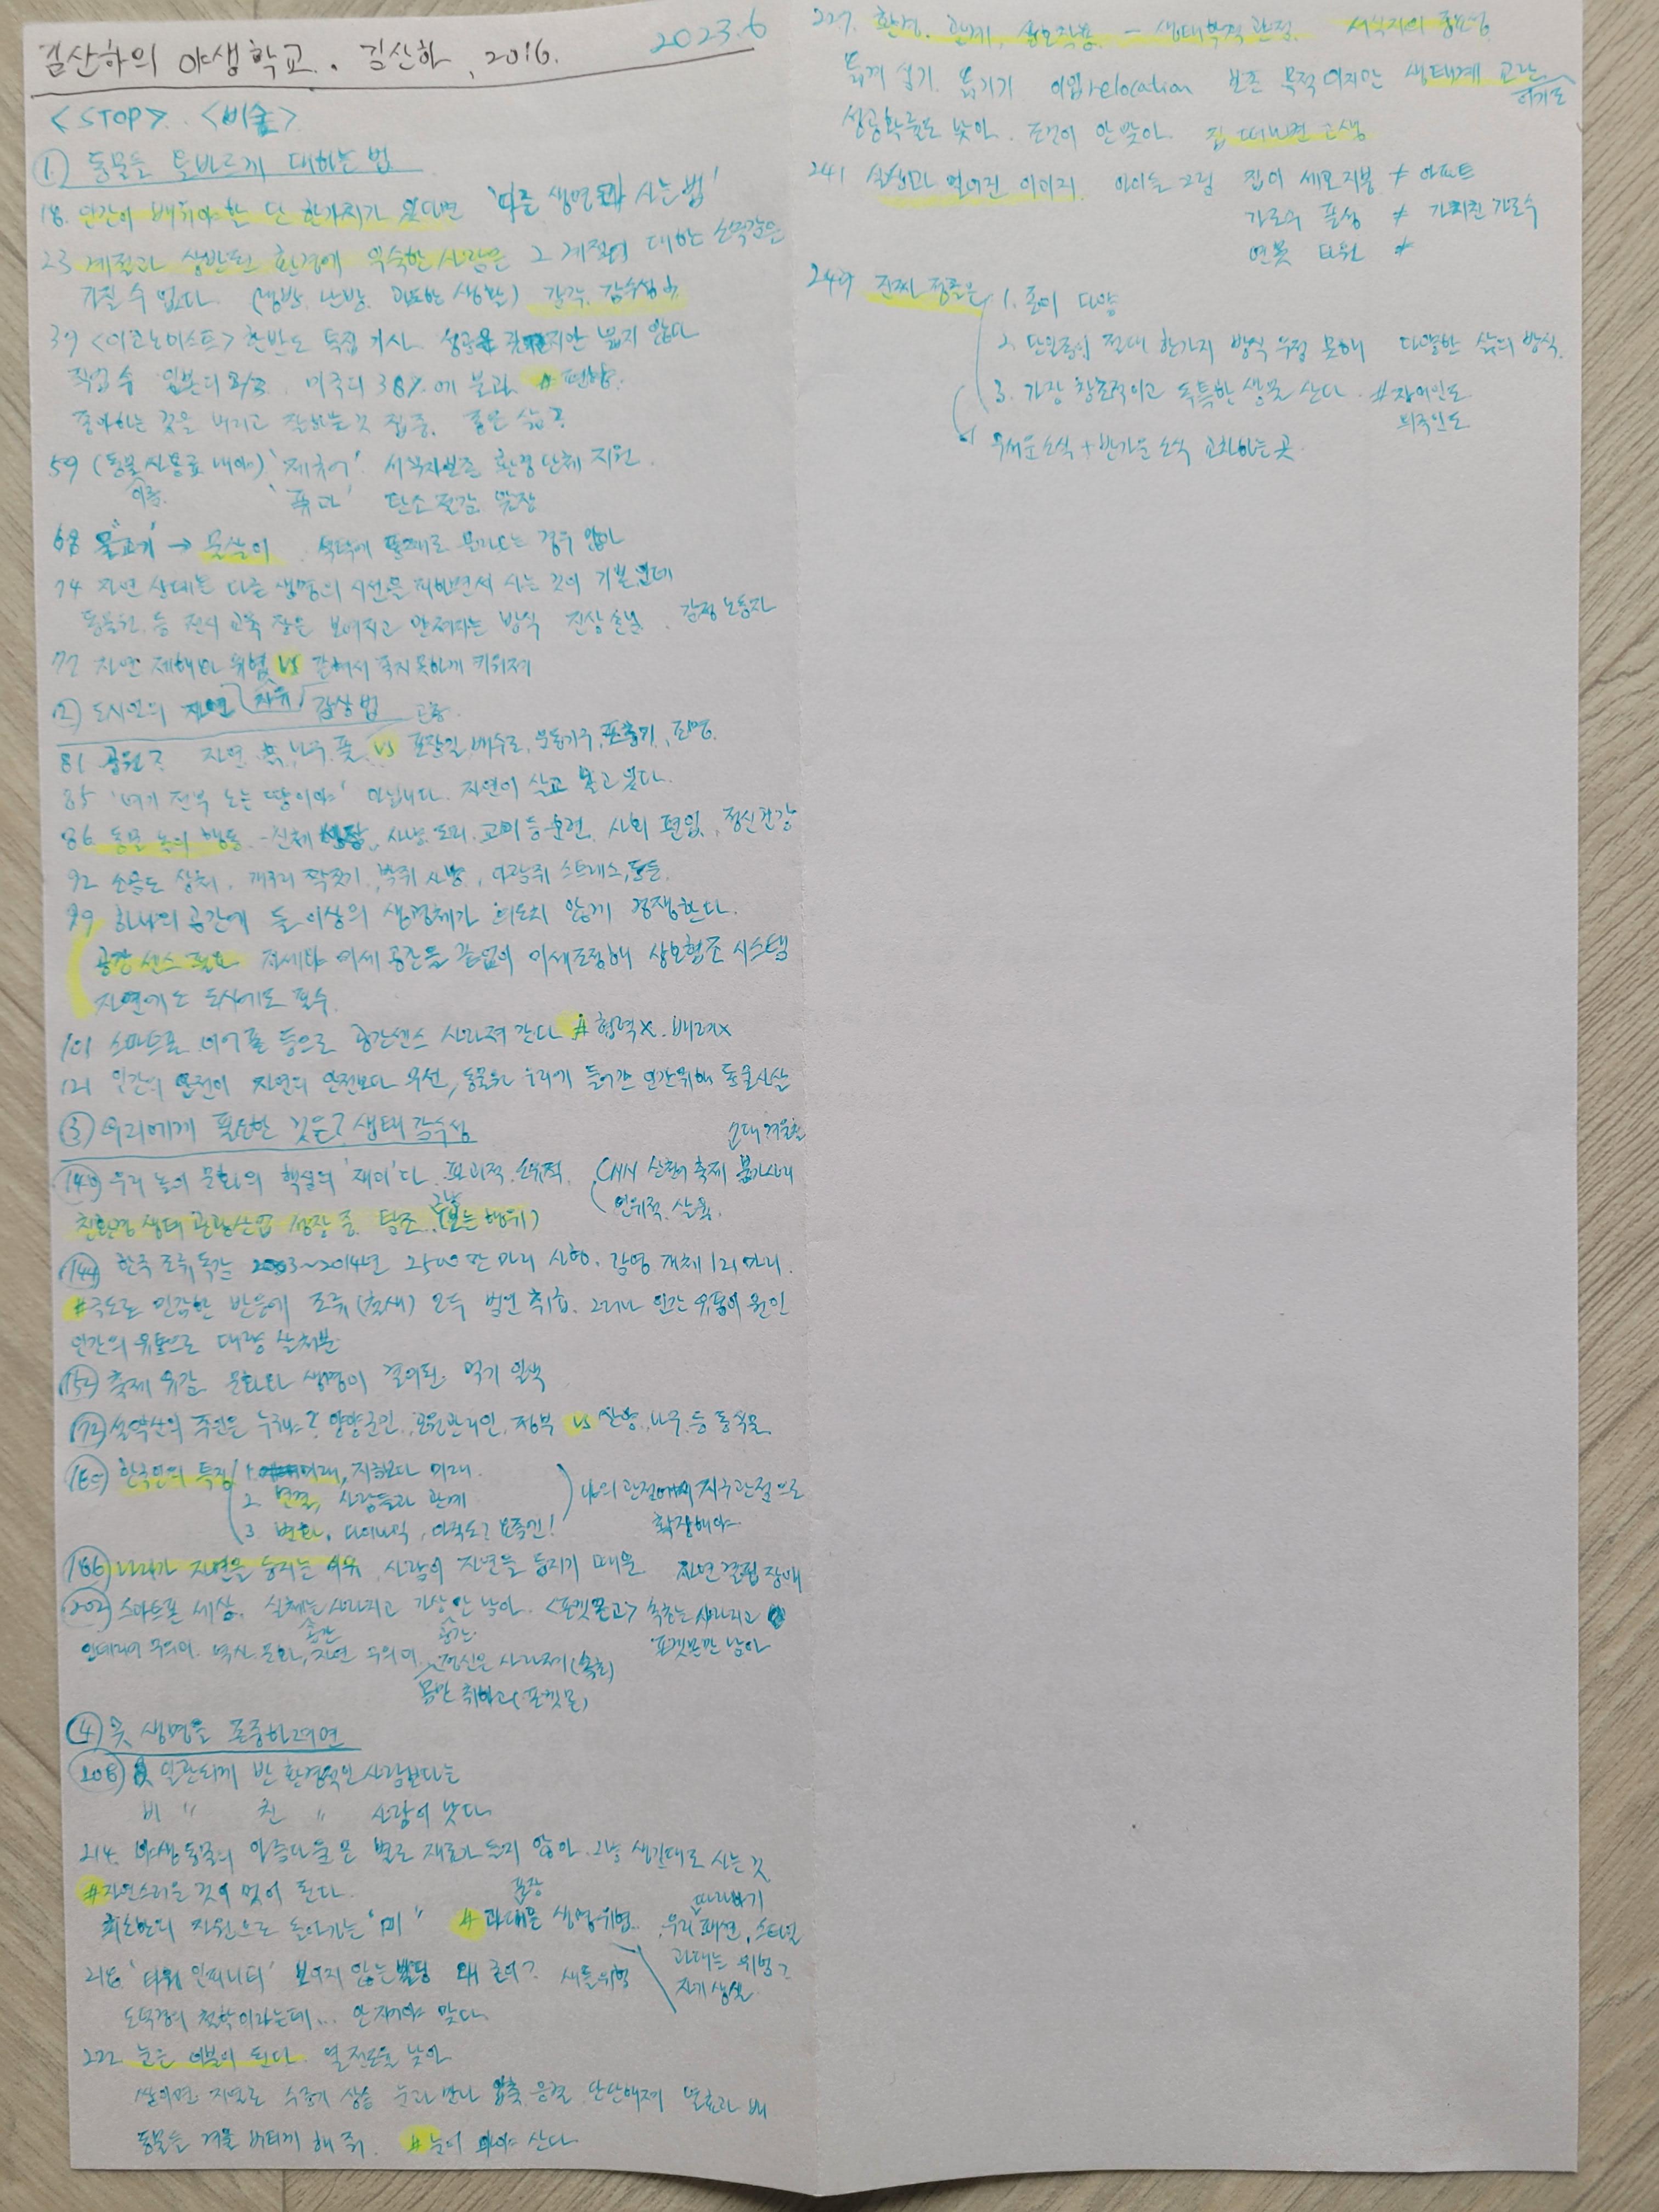 김산하의 야생학교. 김산하, 2016. 2023.6
<STOP> <비숲>
① 동물을 올바르게 대하는 법
18. 인간이 배워야 한 단 한가지가 있다면 '다른 생명과 사는 법'
23 계절과 상반된 환경에 익숙한 사람은 그 계절에 대한 소속감을
가질 수 없다. (냉방. 난방. 생활) 감각. 감수성
39 <이코노미스트> 한반도 특집 기사. 성공 지만 붙지 않다
직업 수 일본의 2/3, 미국의 38%에 불과 # 편향.
좋아하는 것을 버리고 잘하는 것 집중. 좋은 삶?
59 (동물 사용료 내야) '제규어' 서식지보존 환경단체 지원.
이름. '퓨마' 탄소 절감
68 물"고기" → 물살이 식탁에 통째로 올라오는 경우 많아
74 자연 상태는 다른 생명의 시선을 피하면서 사는 것이 기본인데
동물원 등 전시 교육 장은 보여지고 만져지는 방식 진상손님. 감정 노동자
77 자연 제해나 위험 vs 갇혀서 죽지 못하게 키워져
② 도시인의 자연 감상법
자유
81 공원? 자연. 흙, 나무, 풀 vs 포장길, 배수로, 운동기구, 조명.
85 '여기 전부 노는 땅이야' 아닙니다. 자연이 살고 있다.
86 동물 놀이 행동 - 신체 성장, 사냥. 도피. 교미 등 훈련. 사회 편입, 정신건강
92 소음도 상처. 개구리 짝짓기, 박쥐 사냥, 스트레스,
99 하나의 공간에 둘 이상의 생명체가 의도치 않게 경쟁한다.
공간 센스 필요 자세나 미세 공간을 끊임없이 미세조정해 상호협조 시스템
자연에는 도시에도 필수.
101 스마트폰 이어폰 등으로 공간센스 사라져 간다 # 협력x. 배려x
121 인간의 안전이 자연의 안전보다 우선, 동물원 우리에 들어간 인간위해 동물사살
③ 우리에게 필요한 것은? 생태 감수성
140 우리 놀이 문화의 핵심의 '재미'다. 파괴적. 소유적. CNN 산천어 축제 불가사의
인위적. 살육.
친환경 생태 관광산업 성장 중. 탐조.. (보는 행위)
그냥
144 한국 조류독감 2003~2014년 2500만 마리 살처. 감염 개체 121마리.
#극도로 민감한 반응에 조류(철새) 모두 범인 취급. 그러나 인간 유통이 원인
인간의 유통으로 대량 살처분
152 축제 유감. 문화와 생명이 결여된 먹기 일색
172 설악산의 주인은 누구냐? 양양군민, 공원관리인, 정부 vs 산양, 나무 등 동식물
한국인의 특징 1. 미래, 지금보다 미래.
2. 연결, 사람들과 관계
3 변화, 다이나믹, 아직도? 요즘엔!
나의 관점에서 지구관점으로
확장해야
186 나라가 자연을 등지는 이유. 사람이 자연을 등지기 때문. 자연결핍 장애
202 스마트폰 세상. 실체는 사라지고 가상만 남아. <포켓몬고> 속초는 사라지고
공간 공간
역사. 문화, 자연 무의미. 정신은 사라지게(속초) 포켓몬만 남아
몸만 취하고(포켓몬)
④ 뭇 생명을 존중하려면
208 일관되게 반환경적인 사람보다는
비 〃 친 〃 사람이 낫다
214. 야생동물의 아름다움은 별로 재료가 들지 않아. 그냥 생긴대로 사는 것
#자연스러운 것이 멋이 된다. 포장 따라하기
최소한의 자원으로 돌아가는 "미" # 과대은 생명위협.. 우리 패션, 스타일
과대는 위험?
자기 상실
218 '타워 인피니티' 보이지 않는 빌딩 왜 굳이? 새들위험
도덕경의 철학이라는데... 안 지어야 맞다.
222 눈은 이불이 된다. 열전도율 낮아
쌓이면 지열로 수증기 상승 눈과 만나 압축 응결 단단해져
동물들 겨울 버티게 해 줘. #눈이 와야 산다
227. 환경. 관계. 상호작용. - 생태학적 관점. 서식지의 중요성
옮겨 심기. 옮기기 이입relocation 보존 목적이지만 생태계 교란
이기도
성공확률도 낮아. 조건이 안 맞아. 집 떠나면 고생
241 실생과 멀어진 이미지. 아이들 그림 집이 세모지붕 ≠ 아파트
가로수 풍성 ≠ 가지친 가로수
연못 타원 ≠
249 진짜 정글은 1. 종이 다양
2. 단일종이 절대 한가지 방식 우점 못해 다양한 삶의 방식.
3. 가장 창조적이고 독특한 생물 산다. #장애인도
외국인도
무서운소식 + 반가운 소식 교차하는 곳.